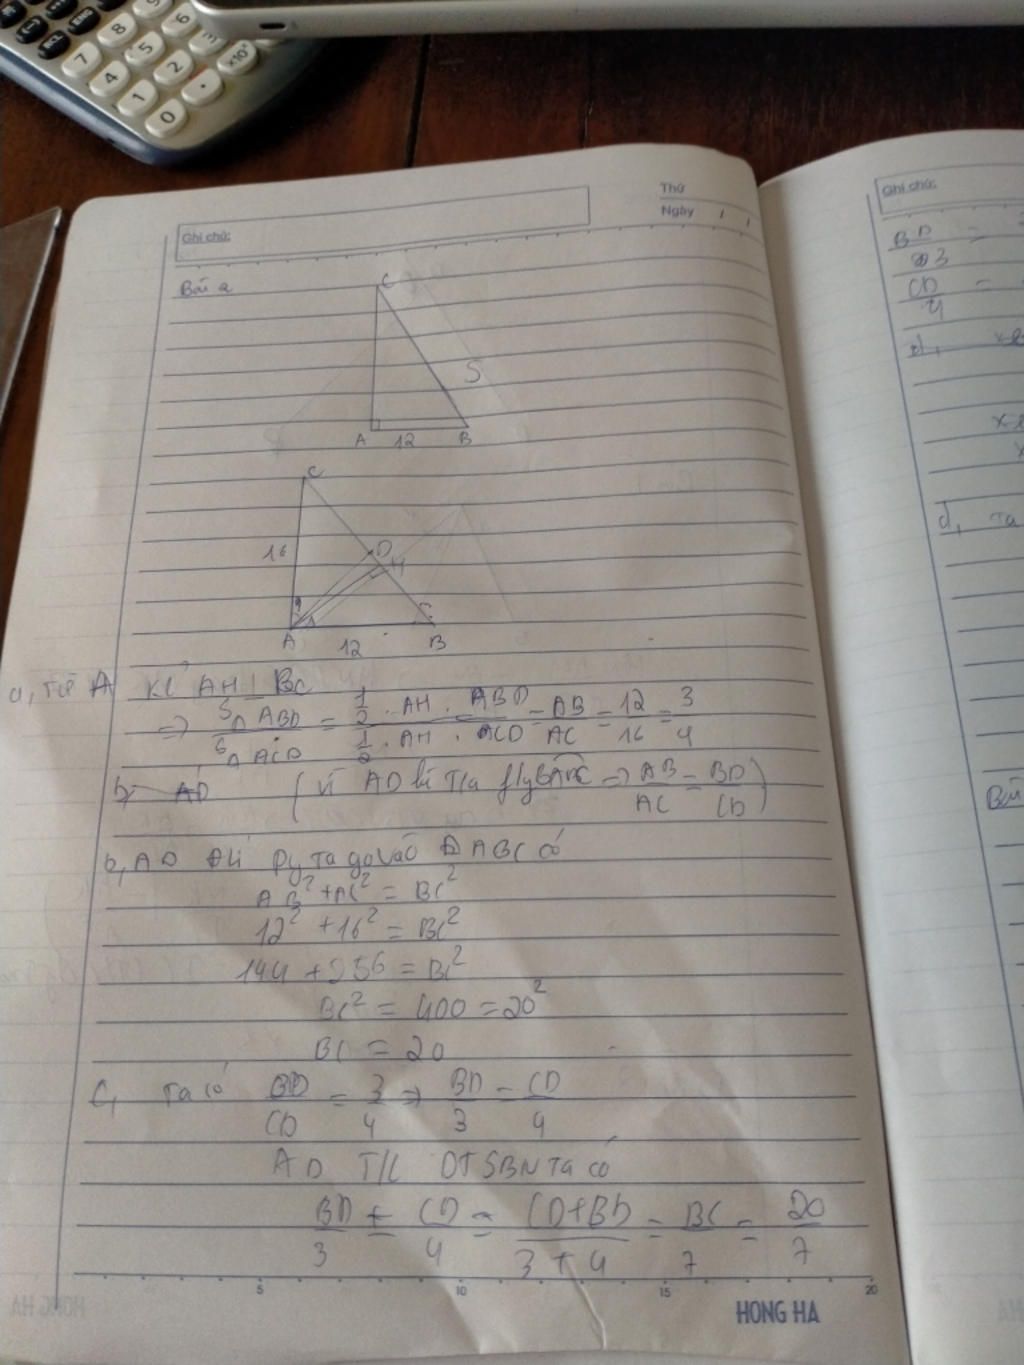 Thứ
Ngày / /
Ghi chú:
Bài 2
C
S
A 12 B
C
16
D
H
A 12 B
a, Từ A kẻ AH ⊥ BC
=> S△ABD / S△ACD = (1/2 . AH . ABD) / (1/2 . AH . ACD) = AB/AC = 12/16 = 3/4
b, AD (vì AD là T/a => AB/AC = BD/CD)
b, AD ĐLí Pytago vào △ABC có
AB² + AC² = BC²
12² + 16² = BC²
144 + 256 = BC²
BC² = 400 = 20²
BC = 20
C, Ta có BD/CD = 3/4 => BD/3 = CD/4
AD T/C DTSBN ta có
BD/3 = CD/4 = (CD+BD)/(3+4) = BC/7 = 20/7
5 10 15 20
HONG HA
Ghi chú:
BD/3 =
CD/4 =
d,
d, Ta
Bài
7 8 9
4 5 6
1 2 3
0 . ×10